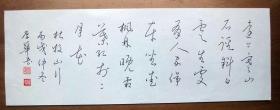 遠上寒山
石径斜白
雲生處
有人家停
車坐愛
楓林晚霜
葉紅於二
月花
杜牧山行
丙戌仲冬